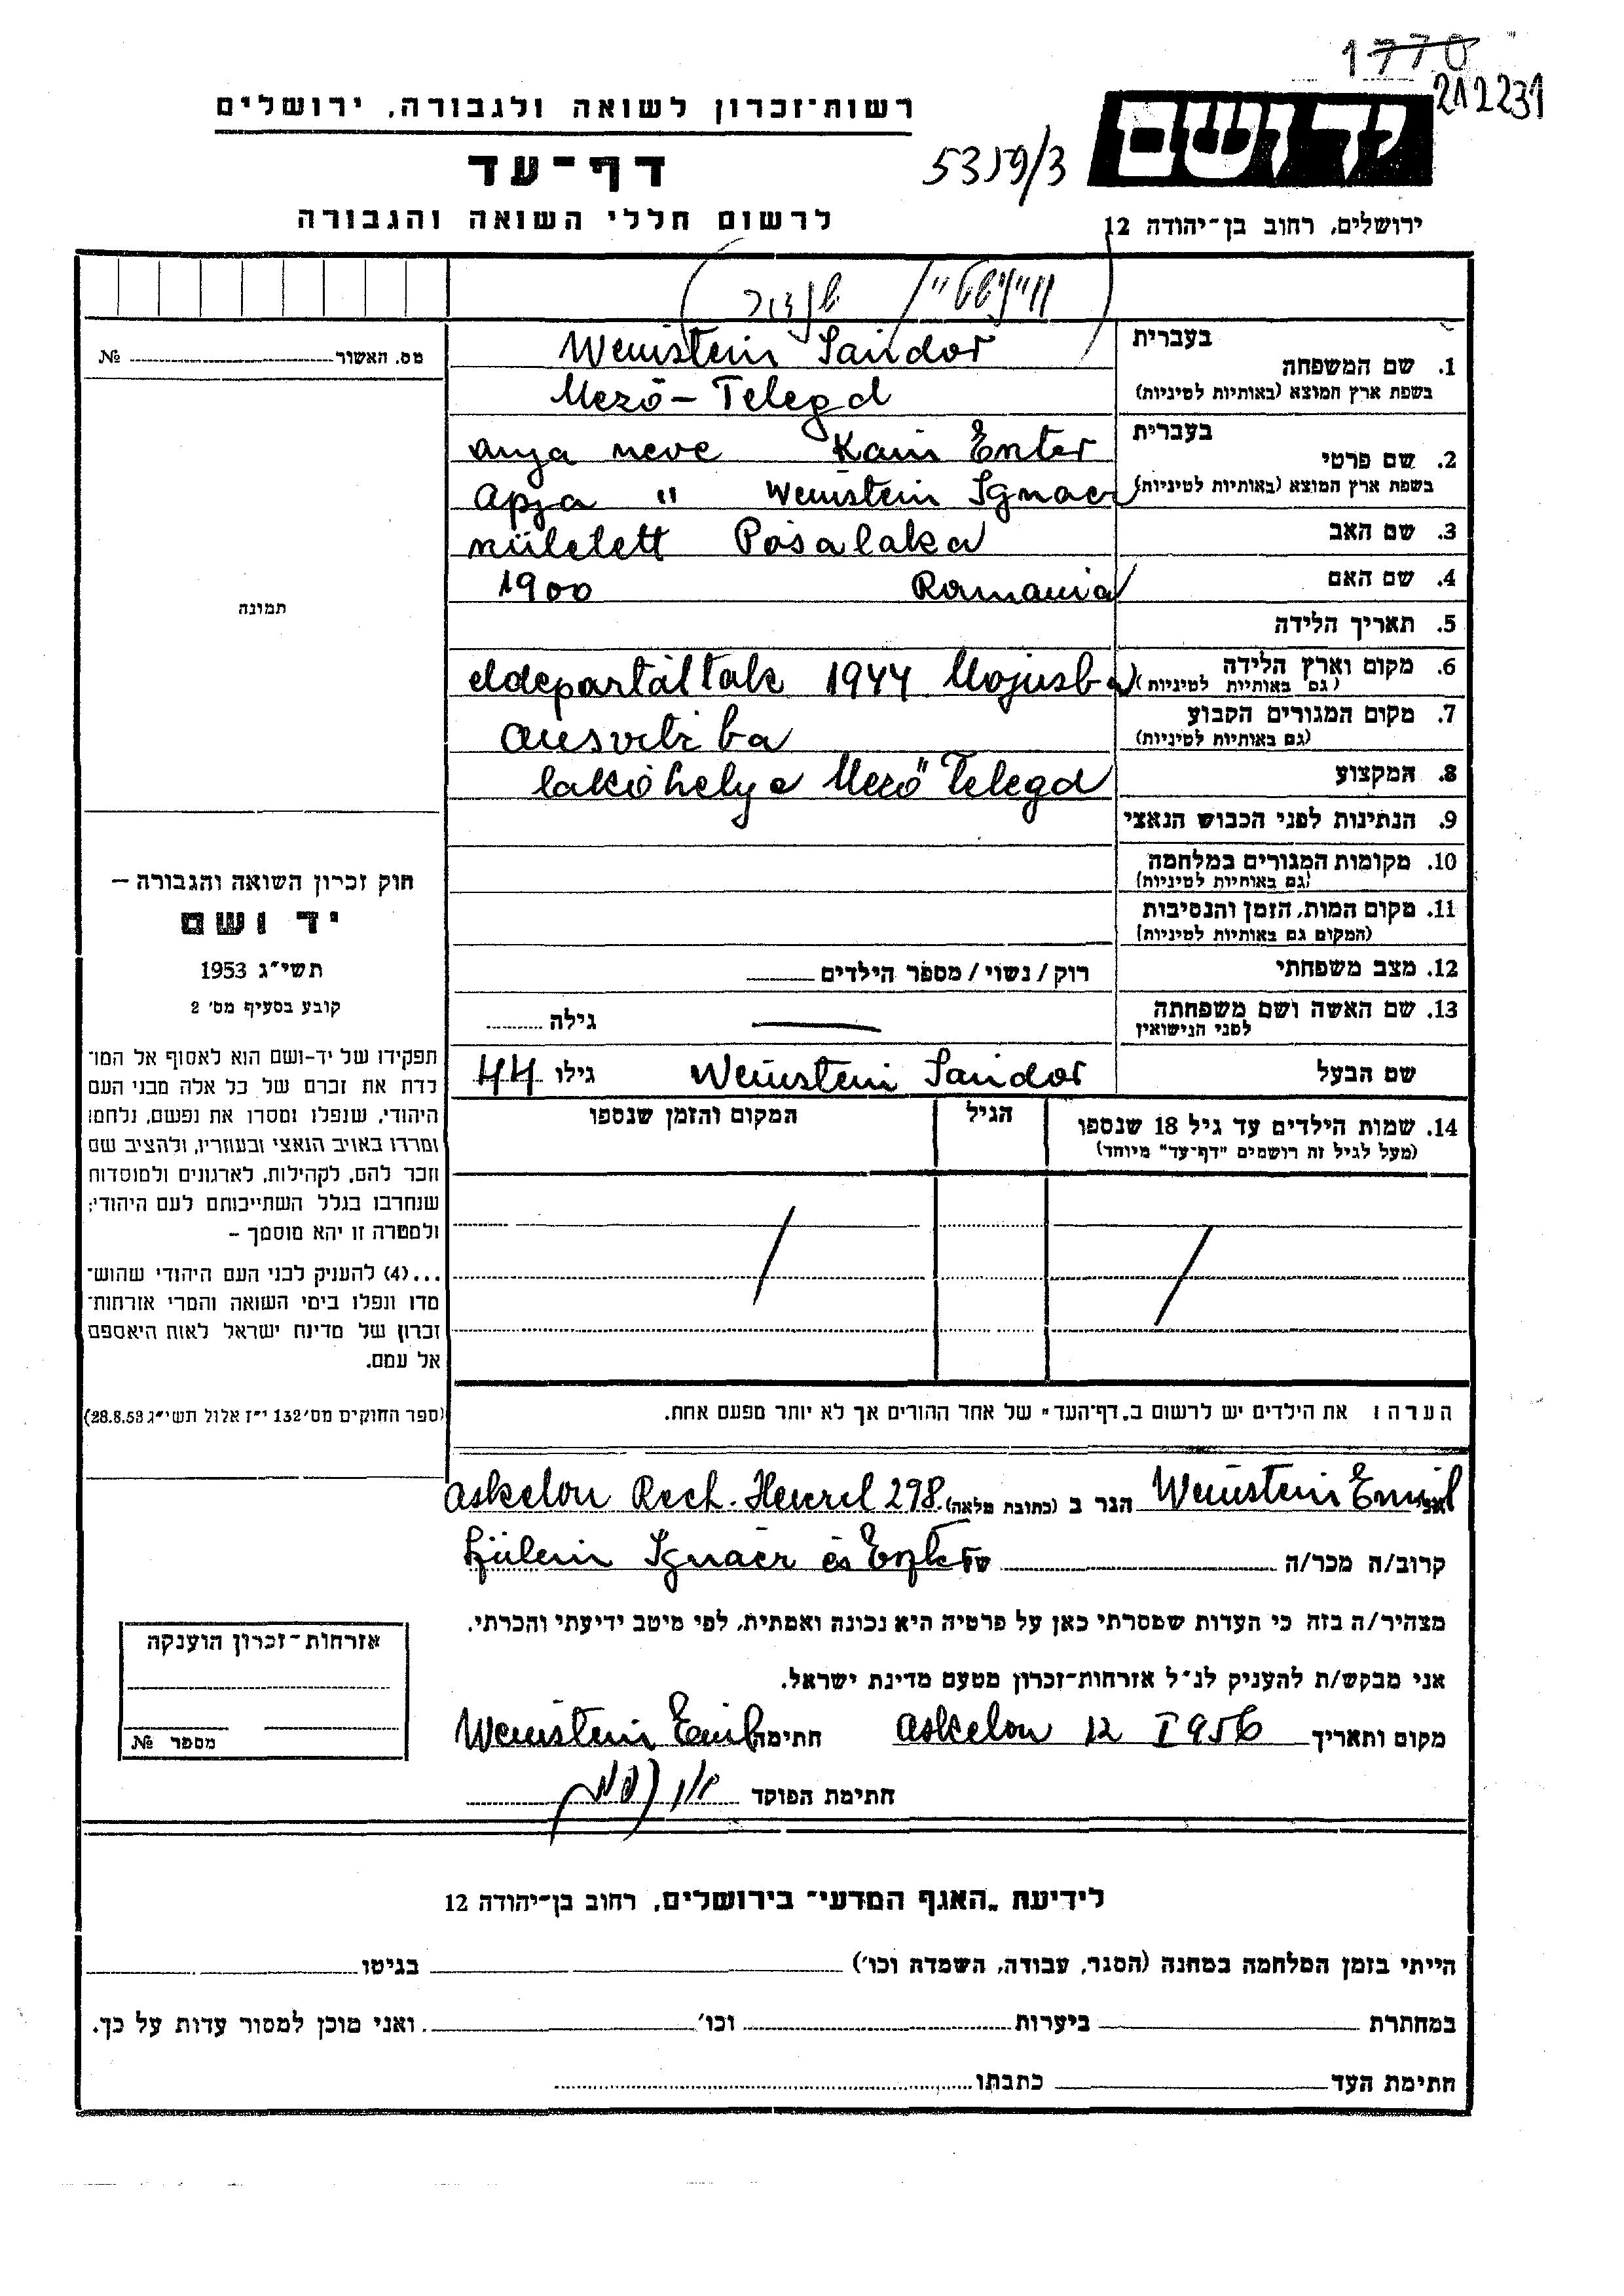 1770
212231
רשות־זכרון לשואה ולגבורה, ירושלים
ידושם
דף־עד
5319/3
לרשום חללי השואה והגבורה
ירושלים, רחוב בן־יהודה 12
בעברית
Weinstein Sándor
1. שם המשפחה
בשפת ארץ המוצא (באותיות לטיניות)
Mező-Telegd
מס. האשור № 
בעברית
anya neve Kain Eszter
2. שם פרטי
בשפת ארץ המוצא (באותיות לטיניות)
Apja " Weinstein Ignacz
3. שם האב
született Posalaka
4. שם האם
1900 Romania
תמונה
5. תאריך הלידה
6. מקום וארץ הלידה
(גם באותיות לטיניות)
eldepartáltak 1944 Majusba
7. מקום המגורים הקבוע
(גם באותיות לטיניות)
ausvitzba
8. המקצוע
lakóhelye Mező Telegd
9. הנתינות לפני הכבוש הנאצי
10. מקומות המגורים במלחמה
(גם באותיות לטיניות)
11. מקום המות, הזמן והנסיבות
(המקום גם באותיות לטיניות)
12. מצב משפחתי
רוק / נשוי / מספר הילדים
13. שם האשה ושם משפחתה
לפני הנישואין
גילה
שם הבעל Weinstein Sándor גילו 44
14. שמות הילדים עד גיל 18 שנספו
(מעל לגיל זה רושמים "דף־עד" מיוחד)
הגיל
המקום והזמן שנספו
הערה: את הילדים יש לרשום ב"דף־העד" של אחד ההורים אך לא יותר מפעם אחת.
חוק זכרון השואה והגבורה –
יד ושם
תשי״ג 1953
קובע בסעיף מס׳ 2
תפקידו של יד-ושם הוא לאסוף אל המו־
לדת את זכרם של כל אלה מבני העם
היהודי, שנפלו ומסרו את נפשם, נלחמו
ומרדו באויב הנאצי ובעוזריו, ולהציב שם
וזכר להם, לקהילות, לארגונים ולמוסדות
שנחרבו בגלל השתייכותם לעם היהודי;
ולמטרה זו יהא מוסמך –
...(4) להעניק לבני העם היהודי שהוש־
מדו ונפלו בימי השואה והמרי אזרחות־
זכרון של מדינת ישראל לאות היאספם
אל עמם.
(ספר החוקים מס׳ 132 י״ז אלול תשי״ג 28.8.53)
אני Weinstein Emil הגר ב (כתובת מלאה) Askelon Rech. Herzel 298.
קרוב/ה מכר/ה של Ignácz és Eszter
מצהיר/ה בזה כי העדות שמסרתי כאן על פרטיה היא נכונה ואמתית, לפי מיטב ידיעתי והכרתי.
אני מבקש/ת להעניק לנ״ל אזרחות־זכרון מטעם מדינת ישראל.
מקום ותאריך Askelon 12 I 1956 חתימה Weinstein Emil
חתימת הפוקד
אזרחות־זכרון הוענקה
מספר №
לידיעת „האגף המדעי״ בירושלים, רחוב בן־יהודה 12
הייתי בזמן המלחמה במחנה (הסגר, עבודה, השמדה וכו׳) בגיטו
במחתרת ביערות וכו׳ . ואני מוכן למסור עדות על כך.
חתימת העד כתבתו